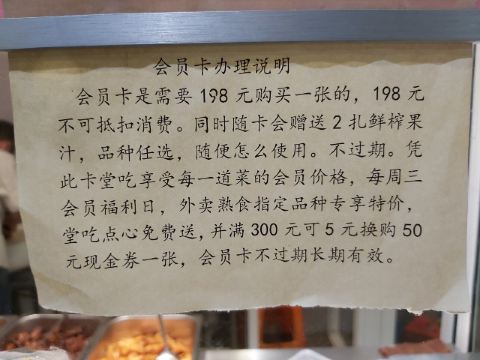 会员卡办理说明
会员卡是需要 198 元购买一张的，198 元
不可抵扣消费。同时随卡会赠送 2 扎鲜榨果
汁，品种任选，随便怎么使用。不过期。凭
此卡堂吃享受每一道菜的会员价格，每周三
会员福利日，外卖熟食指定品种专享特价，
堂吃点心免费送，并满 300 元可 5 元换购 50
元现金券一张，会员卡不过期长期有效。